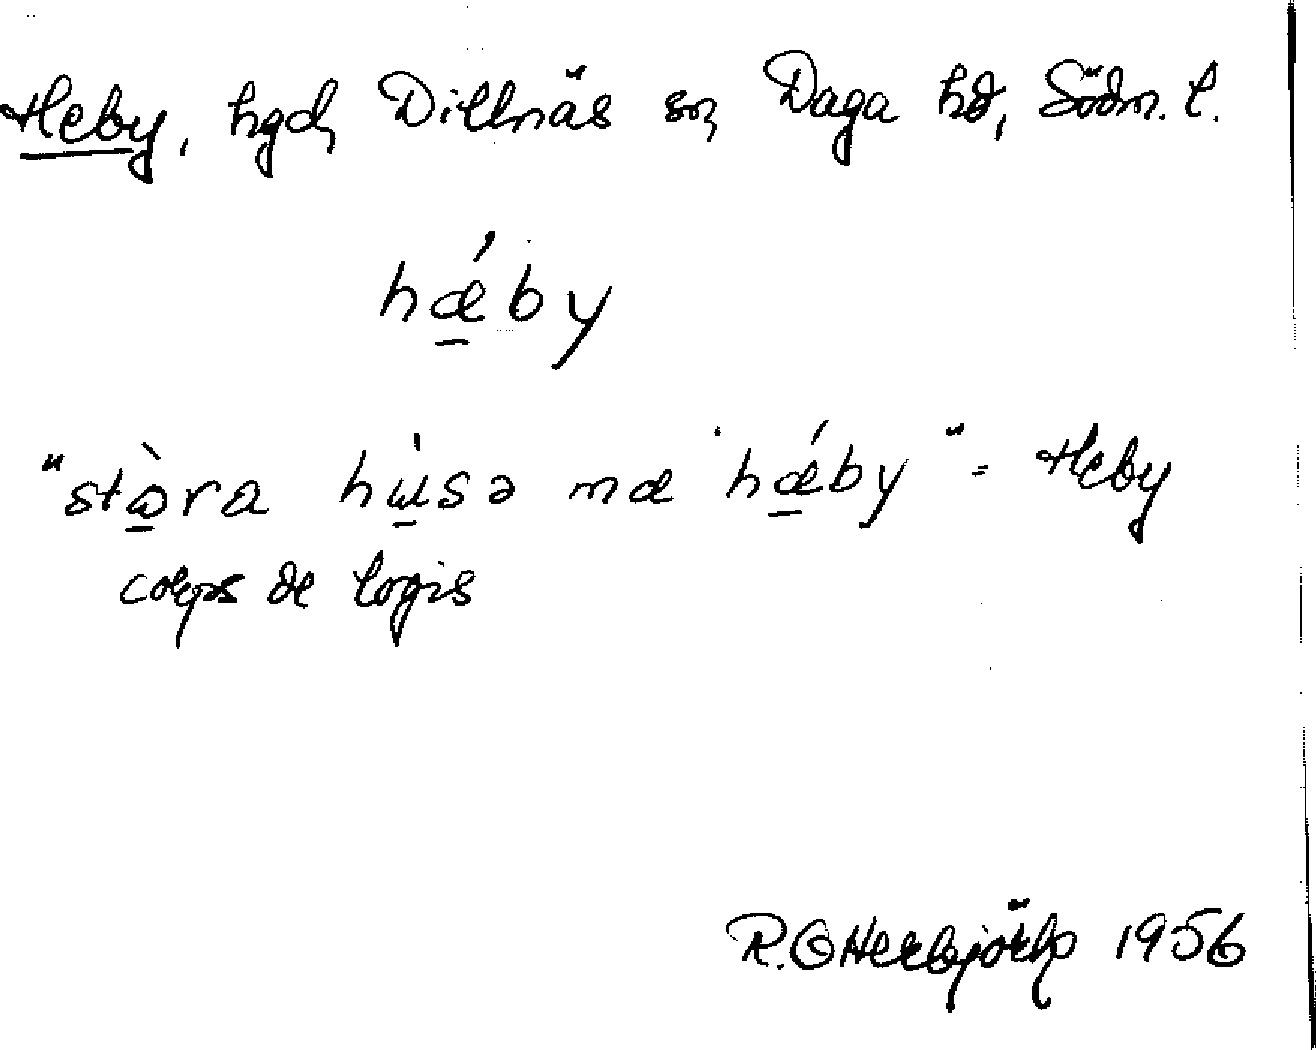 Heby, hgd, Dillnäs sn, Daga hd, Södm. l.
hǽ̱by
"stɷ̱̀ra hɯ̱̀sə mæ hǽ̱by" = Heby
corps de logis
R. Otterbjörk 1956